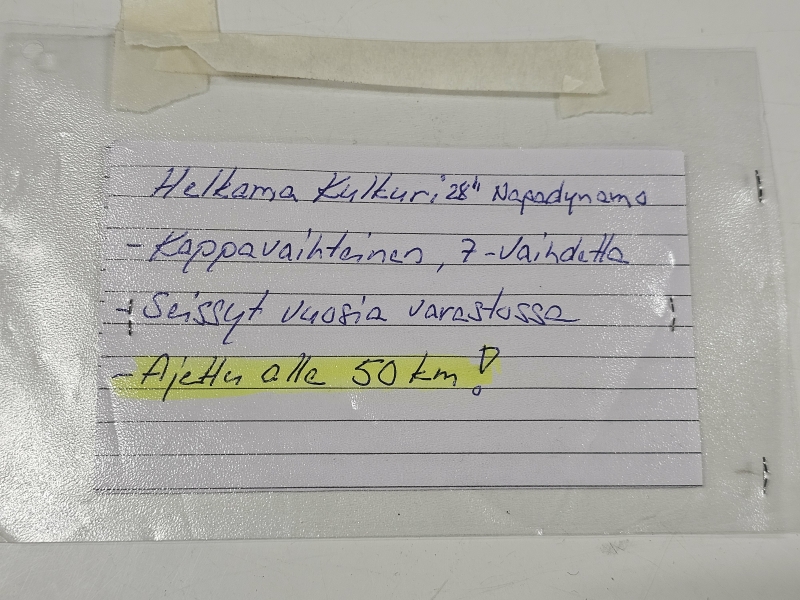 Helkama Kulkuri 28" Napadynamo
- Kappavaihteinen, 7-Vaihdetta
- Seissyt vuosia varastossa
- Ajettu alle 50 km!